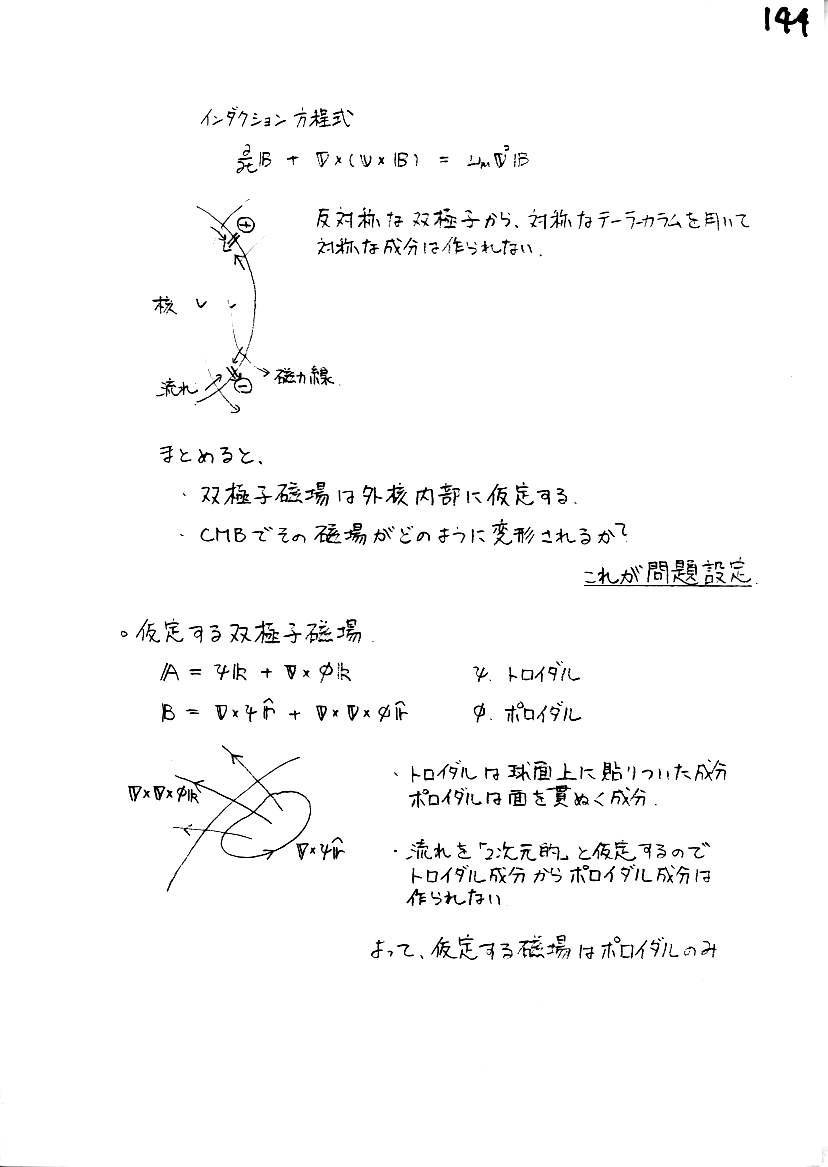 144
インダクション方程式
∂/∂t 𝔹 + ∇×(𝕍×𝔹) = νm∇²𝔹
反対称な双極子から、対称なテーラーカラムを用いて
対称な成分は作られない.
⊕
核
流れ
⊖
磁力線.
まとめると、
・双極子磁場は外核内部に仮定する.
・CMBでその磁場がどのように変形されるか?
これが問題設定.
○仮定する双極子磁場.
𝔸 = ψ𝕣 + ∇×φ𝕣 ψ. トロイダル
𝔹 = ∇×ψr̂ + ∇×∇×φr̂ φ. ポロイダル
∇×∇×φ𝕣
∇×ψr̂
・トロイダルは球面上に貼りついた成分
ポロイダルは面を貫ぬく成分.
・流れを「2次元的」と仮定するので
トロイダル成分からポロイダル成分は
作られない
よって、仮定する磁場はポロイダルのみ